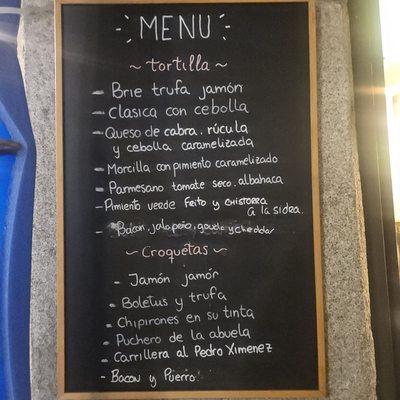 MENU
~ tortilla ~
- Brie trufa jamón
- Clasica con cebolla
- Queso de cabra, rúcula
y cebolla caramelizada
- Morcilla con pimiento caramelizado
- Parmesano tomate seco, albahaca
- Pimiento verde FEito y CHISTORRA
A la sidra.
- Bacon, jalapeño, gouda y cheddar
~ Croquetas ~
- Jamón jamón
- Boletus y trufa
- Chipirones en su tinta
- Puchero de la abuela
- Carrillera al Pedro Ximenez
- Bacon y Puerro.